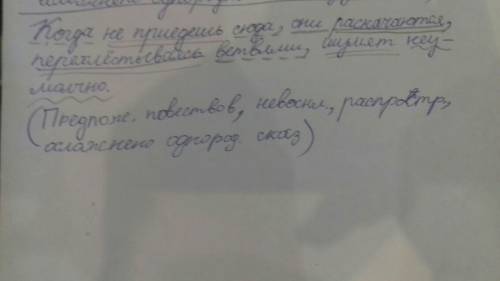 осложнено однород
Когда не приедешь сюда, они раскачаются,
перехлёстываясь ветвями, шумят неу-
молчно.
(Предлож. повествов, невоскл, распростр,
осложнено однород. сказ)